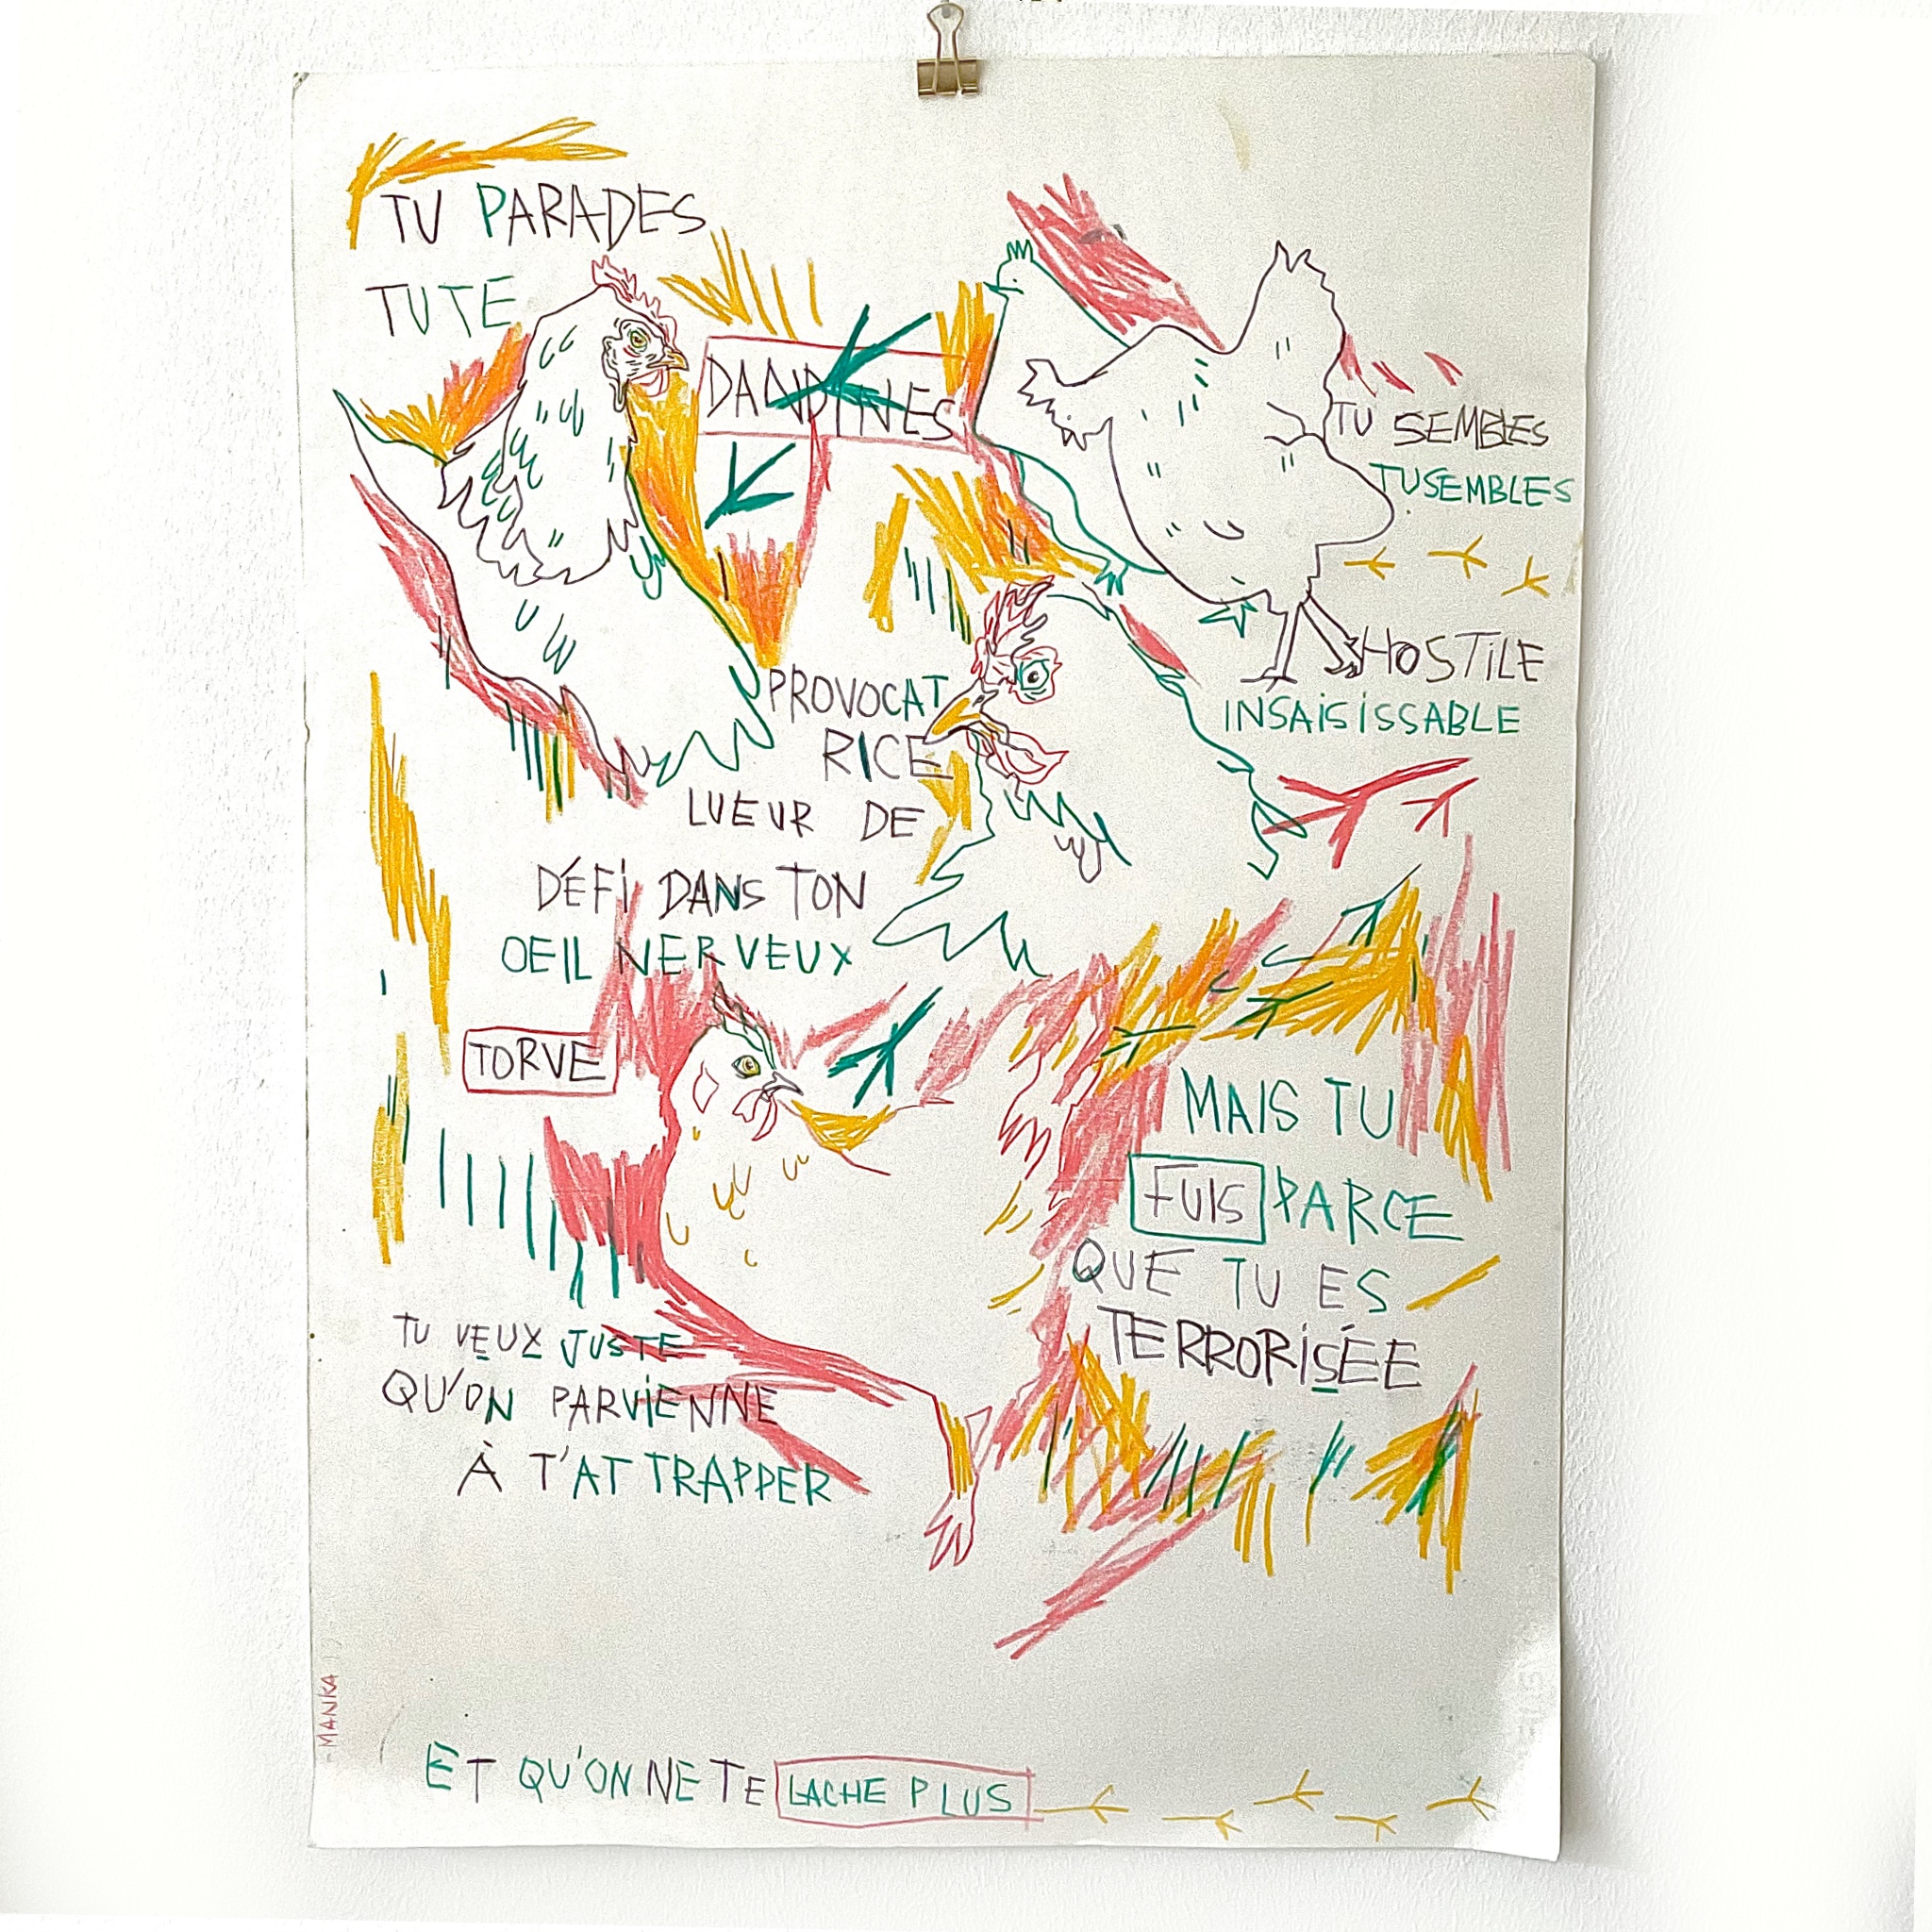 TU PARADES
TU TE
DANDINES
TU SEMBLES
TU SEMBLES
HOSTILE
INSAISISSABLE
PROVOCAT
RICE
LUEUR DE
DÉFI DANS TON
OEIL NERVEUX
TORVE
MAIS TU
FUIS PARCE
QUE TU ES
TERRORISÉE
TU VEUX JUSTE
QU'ON PARVIENNE
À T'ATTRAPPER
MANKA
ET QU'ON NE TE LACHE PLUS